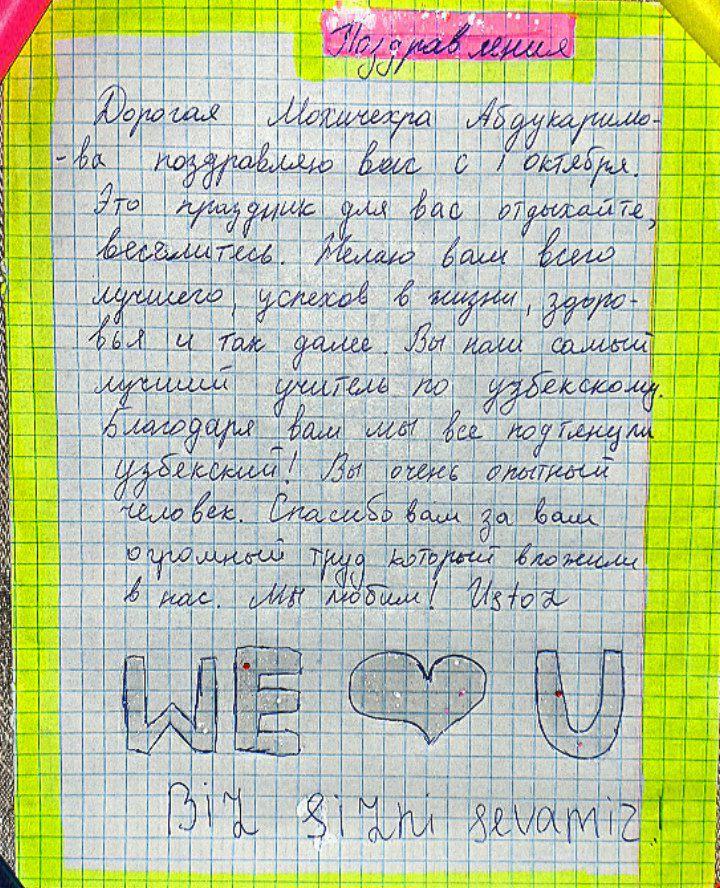 Поздравления
Дорогая Мохичехра Абдукаримо-
-ва поздравляю вас с 1 октября.
Это праздник для вас отдыхайте,
веселитесь. Желаю вам всего
лучшего, успехов в жизни, здоро-
вья и так далее. Вы наш самый
лучший учитель по узбекскому.
Благодаря вам мы все подтянули
узбекский! Вы очень опытный
человек. Спасибо вам за ваш
огромный труд который вложили
в нас. Мы любим! Ustoz
WE ♥ U
Biz sizni sevamiz!